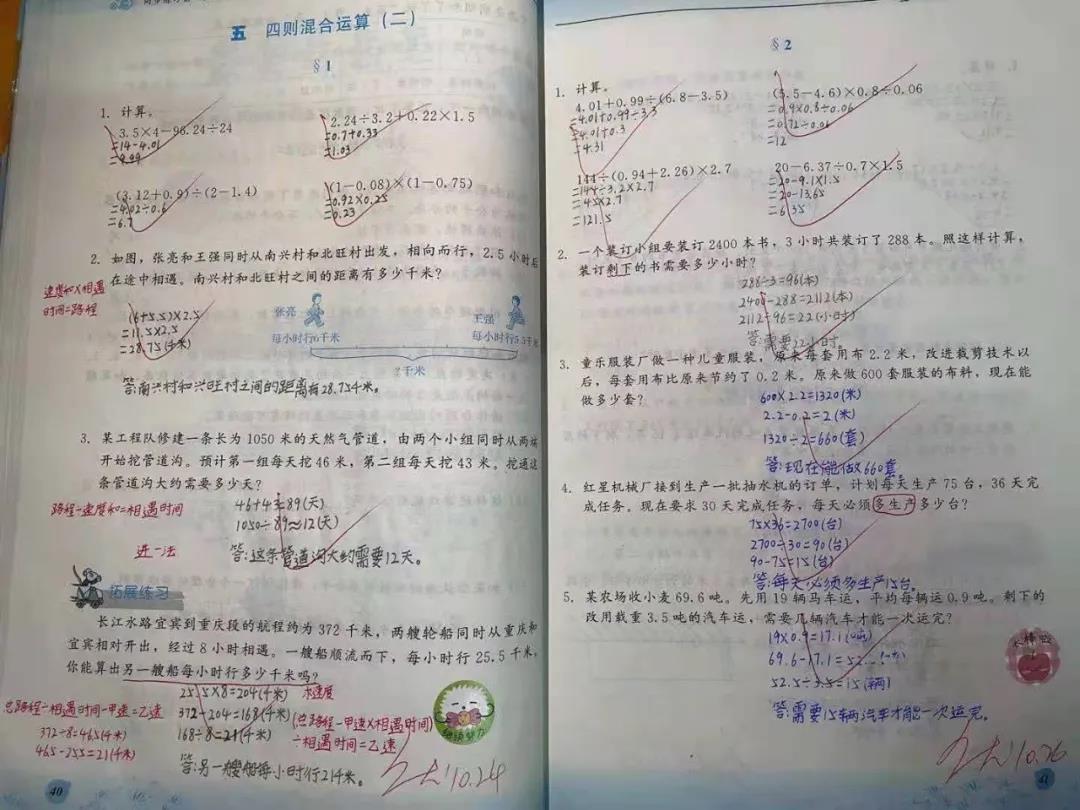 五 四则混合运算(二)
§1
1. 计算。
3.5×4-96.24÷24
=14-4.01
=9.99
2.24÷3.2+0.22×1.5
=0.7+0.33
=1.03
(3.12+0.9)÷(2-1.4)
=4.02÷0.6
=6.7
(1-0.08)×(1-0.75)
=0.92×0.25
=0.23
2. 如图,张亮和王强同时从南兴村和北旺村出发,相向而行,2.5小时后
在途中相遇。南兴村和北旺村之间的距离有多少千米?
速度和×相遇
时间=路程
(6+5.5)×2.5
=11.5×2.5
=28.75(千米)
张亮
每小时行6千米
王强
每小时行5.5千米
?千米
答:南兴村和兴旺村之间的距离有28.75千米。
3. 某工程队修建一条长为1050米的天然气管道,由两个小组同时从两端
开始挖管道沟。预计第一组每天挖46米,第二组每天挖43米。挖通这
条管道沟大约需要多少天?
路程÷速度和=相遇时间
46+43=89(天)
1050÷89≈12(天)
进一法
答:这条管道沟大约需要12天。
拓展练习
长江水路宜宾到重庆段的航程约为372千米,两艘轮船同时从重庆和
宜宾相对开出,经过8小时相遇。一艘船顺流而下,每小时行25.5千米,
你能算出另一艘船每小时行多少千米吗?
25.5×8=204(千米)
372-204=168(千米)
168÷8=21(千米)
总路程÷相遇时间-甲速=乙速
372÷8=46.5(千米)
46.5-25.5=21(千米)
(总路程-甲速×相遇时间)
÷相遇时间=乙速
答:另一艘船每小时行21千米。
10.24
40
§2
1. 计算。
4.01+0.99÷(6.8-3.5)
=4.01+0.99÷3.3
=4.01+0.3
=4.31
(5.5-4.6)×0.8÷0.06
=0.9×0.8÷0.06
=0.72÷0.06
=12
144÷(0.94+2.26)×2.7
=144÷3.2×2.7
=45×2.7
=121.5
20-6.37÷0.7×1.5
=20-9.1×1.5
=20-13.65
=6.35
2. 一个装订小组要装订2400本书,3小时共装订了288本。照这样计算,
装订剩下的书需要多少小时?
288÷3=96(本)
2400-288=2112(本)
2112÷96=22(小时)
答:需要22小时。
3. 童乐服装厂做一种儿童服装,原来每套用布2.2米,改进裁剪技术以
后,每套用布比原来节约了0.2米。原来做600套服装的布料,现在能
做多少套?
600×2.2=1320(米)
2.2-0.2=2(米)
1320÷2=660(套)
答:现在能做660套。
4. 红星机械厂接到生产一批抽水机的订单,计划每天生产75台,36天完
成任务。现在要求30天完成任务,每天必须多生产多少台?
75×36=2700(台)
2700÷30=90(台)
90-75=15(台)
答:每天必须多生产15台。
5. 某农场收小麦69.6吨。先用19辆马车运,平均每辆运0.9吨。剩下的
改用载重3.5吨的汽车运,需要几辆汽车才能一次运完?
19×0.9=17.1(吨)
69.6-17.1=52
52.5÷3.5=15(辆)
答:需要15辆汽车才能一次运完。
10.26
41